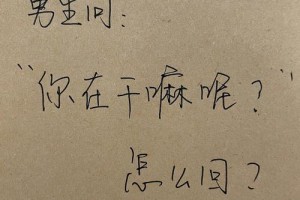 男生问：
“你在干嘛呢？”
怎么回？